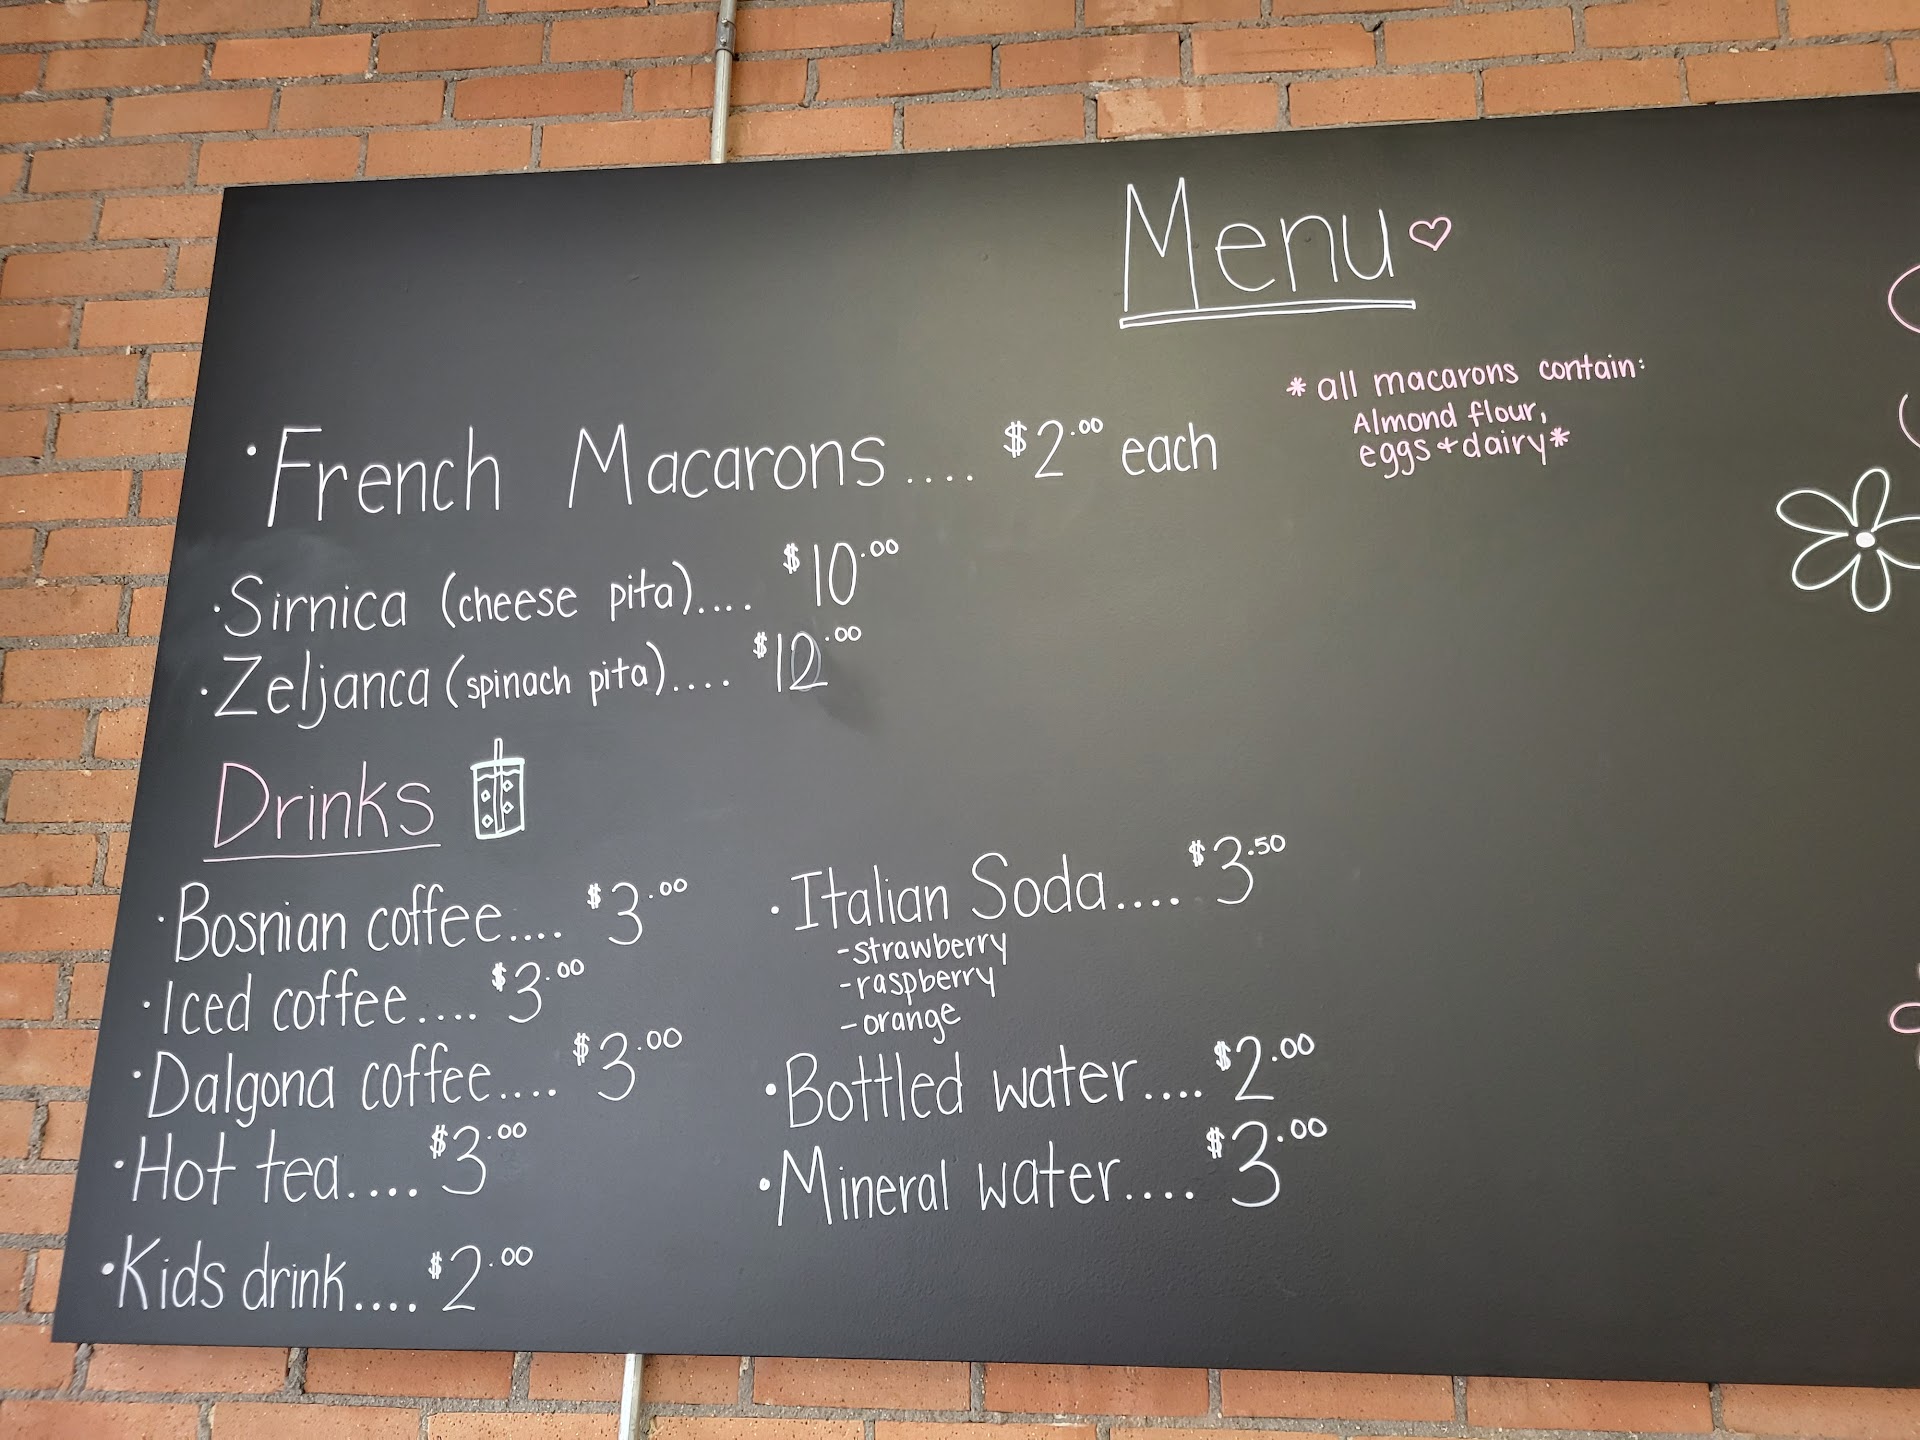 Menu
* all macarons contain:
Almond flour,
eggs + dairy *
• French Macarons .... $2.00 each
• Sirnica (cheese pita).... $10.00
• Zeljanca (spinach pita).... $12.00
Drinks
• Bosnian coffee.... $3.00
• Iced coffee.... $3.00
• Dalgona coffee.... $3.00
• Hot tea.... $3.00
• Kids drink.... $2.00
• Italian Soda.... $3.50
- strawberry
- raspberry
- orange
• Bottled water.... $2.00
• Mineral water.... $3.00